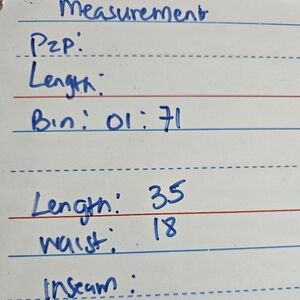 Measurement
P2P:
Length:
Bin: 01:71
Length: 35
Waist: 18
Inseam: